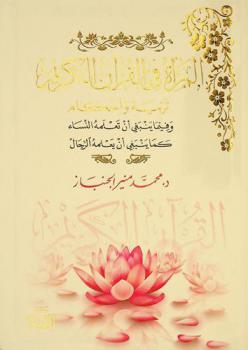 المرأة في القرآن الكريم
تربية وأحكام
وفيما ينبغي أن تعلمه النساء
كما ينبغي أن يعلمه الرجال
د. محمد منير الجنباز
القرآن الكريم